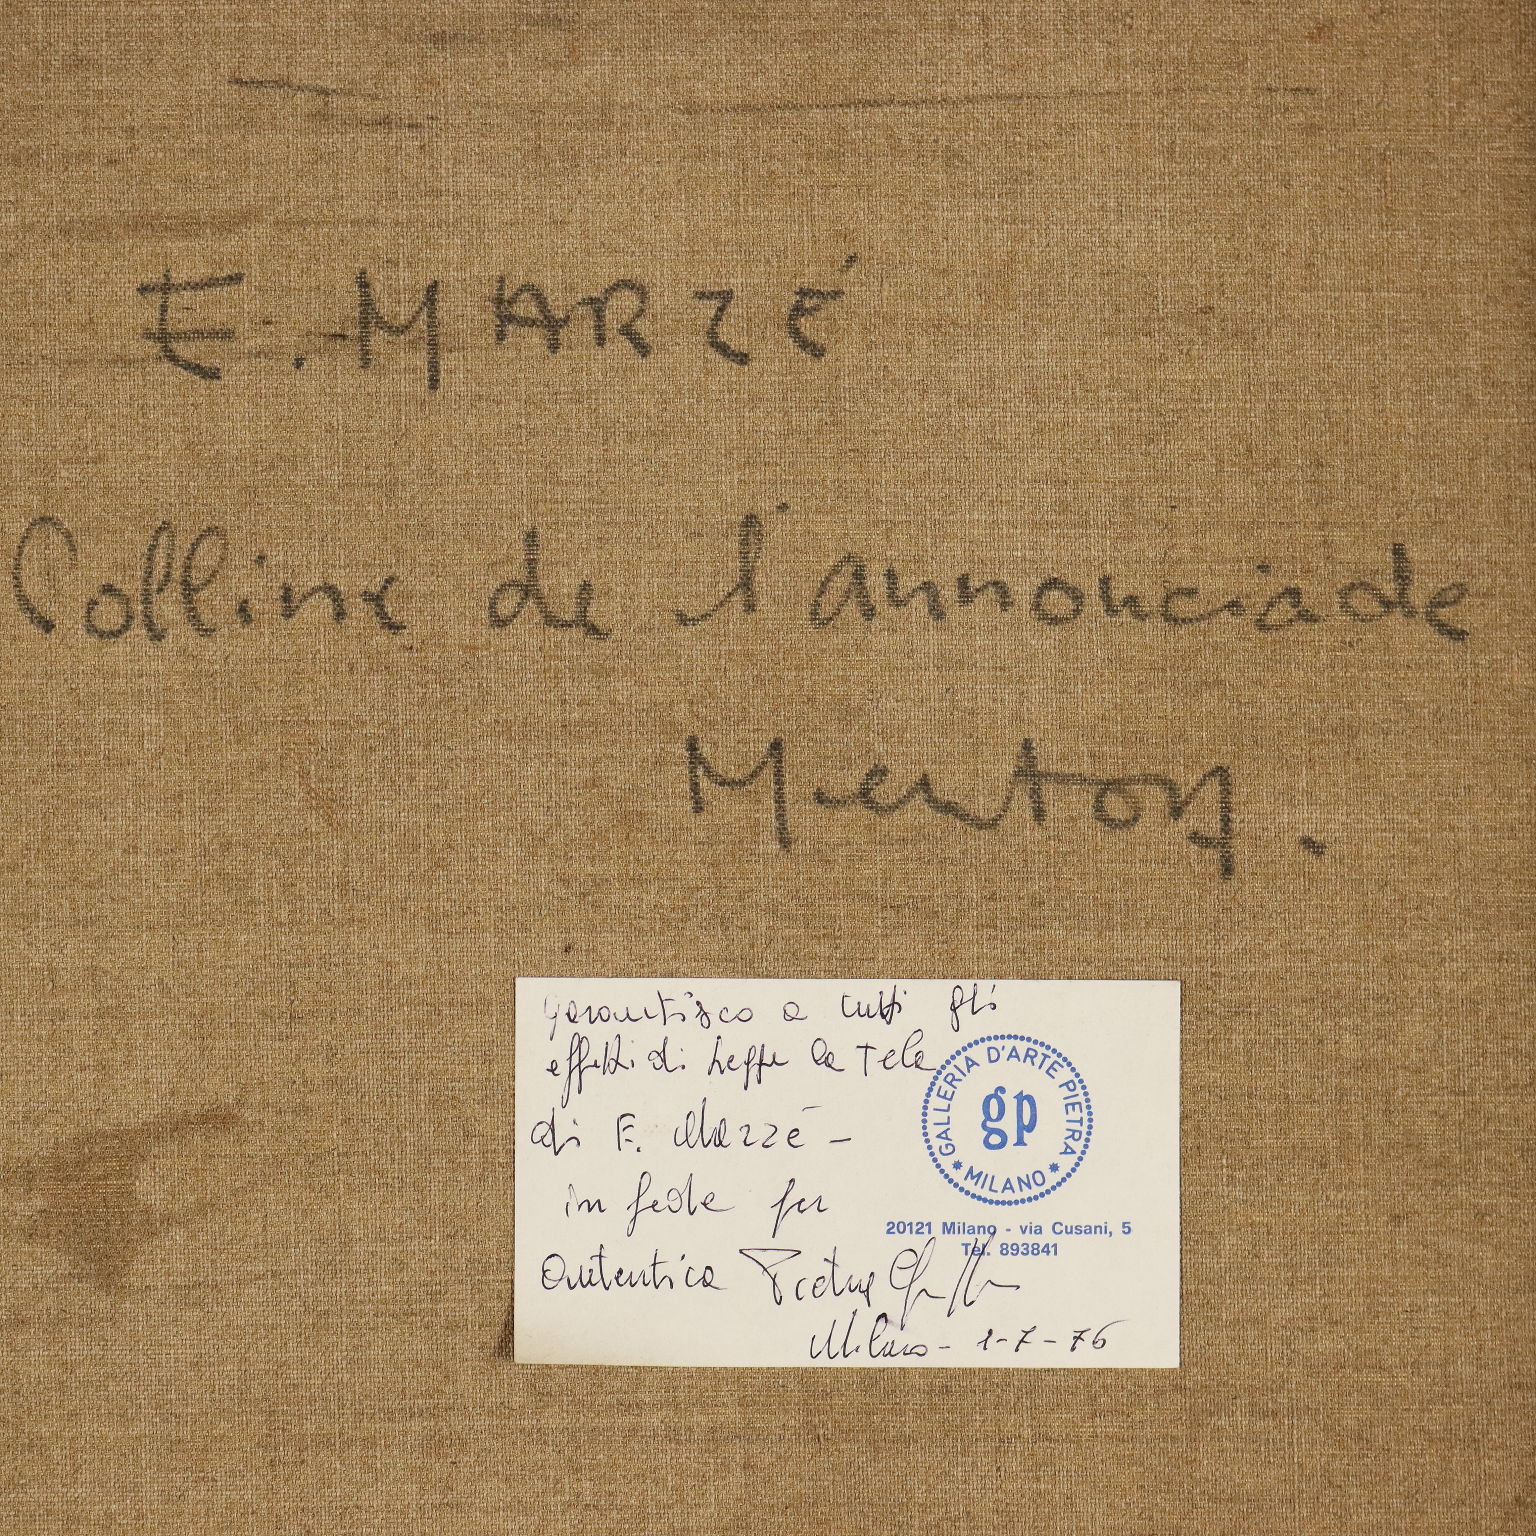 E. MARZÉ
Colline de l'annonciade
Menton.
garantisco a tutti gli
effetti di Legge la Tela
di E. Marzé -
in fede per
autentica Pietra
Milano - 1-7-76
GALLERIA D'ARTE PIETRA
gp
* MILANO *
20121 Milano - via Cusani, 5
Tel. 893841